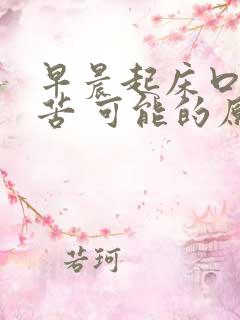 早晨起床口
苦可能的原
若珂